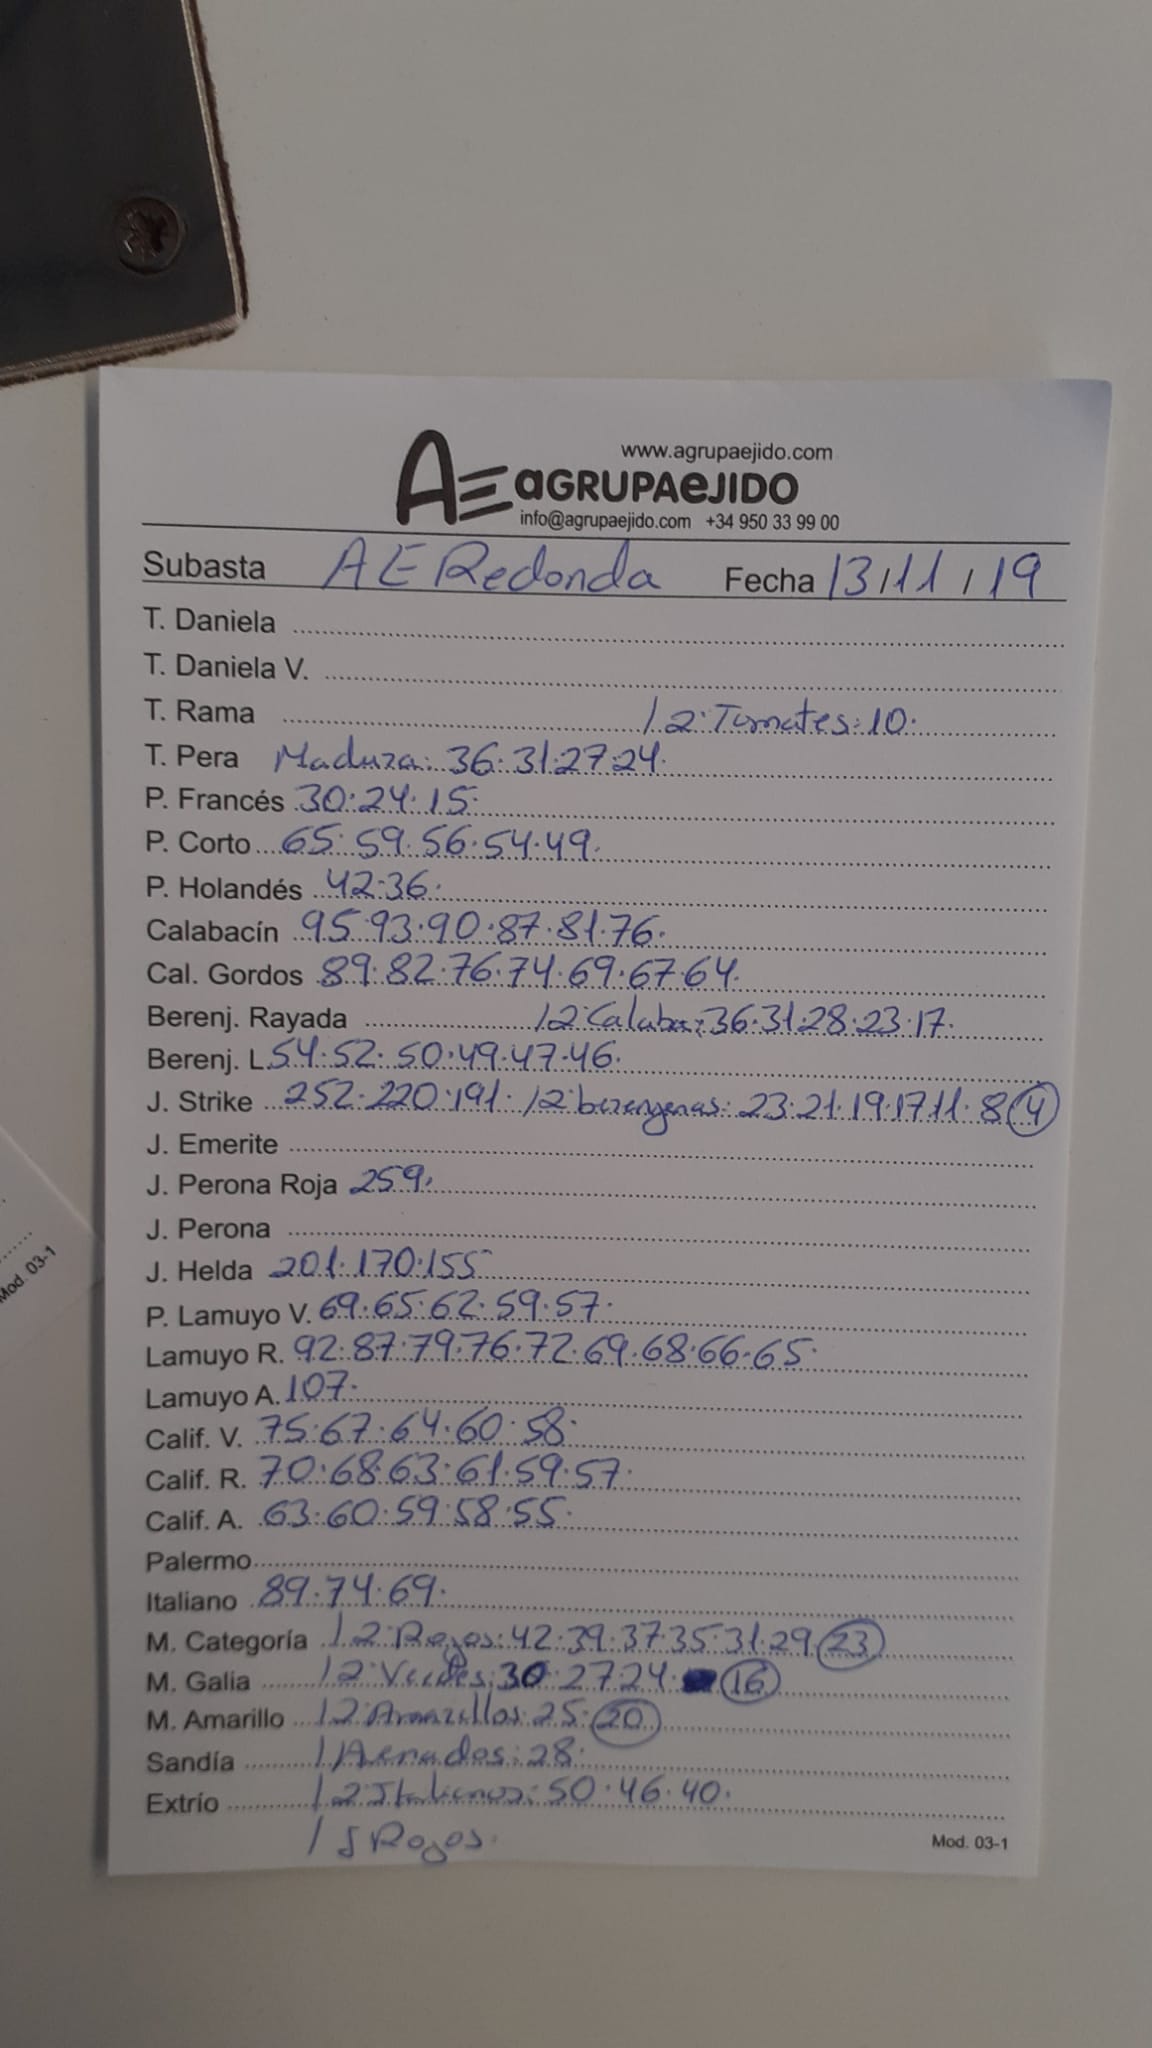 www.agrupaejido.com
AE aGRUPAeJIDO
info@agrupaejido.com +34 950 33 99 00
Subasta AE Redonda Fecha 13/11/19
T. Daniela
T. Daniela V.
T. Rama / 2: Tomates: 10.
T. Pera Maduza: 36. 31. 27. 24.
P. Francés 30. 24. 15.
P. Corto 65. 59. 56. 54. 49.
P. Holandés 42. 36.
Calabacín 95. 93. 90. 87. 81. 76.
Cal. Gordos 89. 82. 76. 74. 69. 67. 64.
Berenj. Rayada / 2: Calaba: 36. 31. 28. 23. 17.
Berenj. L. 54. 52. 50. 49. 47. 46.
J. Strike 252. 220. 191. / 2: berengenas: 23. 21. 19. 17. 11. 8 4
J. Emerite
J. Perona Roja 259.
J. Perona
J. Helda 201. 170. 155
P. Lamuyo V. 69. 65. 62. 59. 57.
Lamuyo R. 92. 87. 79. 76. 72. 69. 68. 66. 65.
Lamuyo A. 107.
Calif. V. 75. 67. 64. 60. 58.
Calif. R. 70. 68. 63. 61. 59. 57.
Calif. A. 63. 60. 59. 58. 55.
Palermo
Italiano 89. 74. 69.
M. Categoría / 2: Rojos: 42. 39. 37. 35. 31. 29. 23
M. Galia / 2: Verdes: 30. 27. 24. 16
M. Amarillo / 2 Amarillos: 25. 20
Sandía / : 28.
Extrío / 2 Italianos: 50. 46. 40.
/ Rojos.
Mod. 03-1
Mod. 03-1